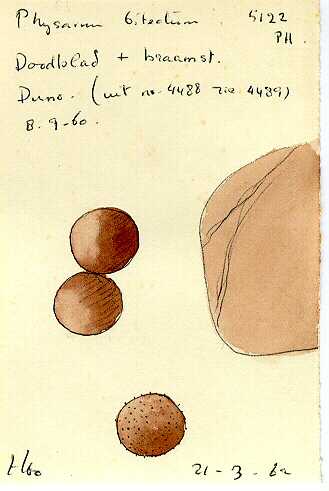 Physarum bitectum 5122
PH.
Doodblad + braamst.
Duno. (uit no. 4488 zie 4489)
8.9-60.
21-3-62